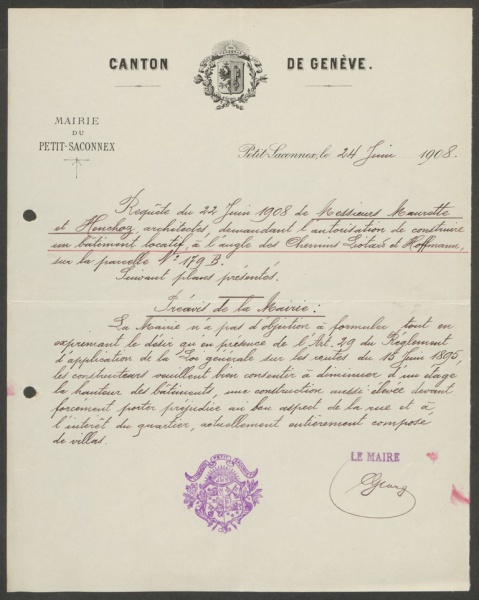 CANTON DE GENÈVE.
MAIRIE
DU
PETIT-SACONNEX
Petit-Saconnex, le 24 Juin 1908.
Requête du 22 Juin 1908 de Messieurs Maurette
et Henchoz, architectes, demandant l'autorisation de construire
un bâtiment locatif, à l'angle des Chemins Liotard et Hoffmann,
sur la parcelle No 179 B.
Suivant plans présentés.
Préavis de la Mairie:
La Mairie n'a pas d'objection à formuler tout en
exprimant le désir qu'en présence de l'Art. 29 du Règlement
d'application de la Loi générale sur les routes du 15 Juin 1895,
les constructeurs veuillent bien consentir à diminuer d'un étage
la hauteur des bâtiments, une construction aussi élevée devant
forcément porter préjudice au bon aspect de la rue et à
l'intérêt du quartier, actuellement entièrement composé
de villas.
LE MAIRE